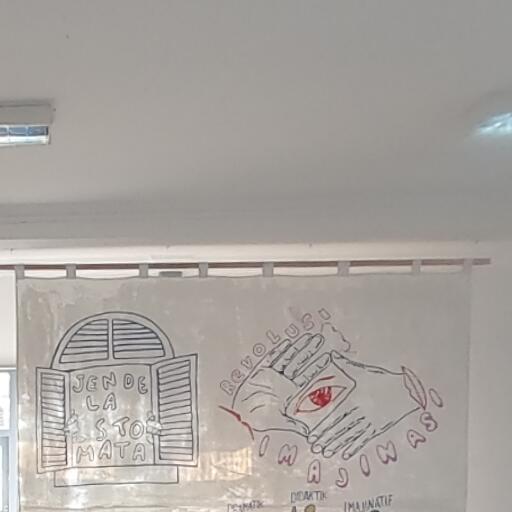 JENDE
LA
ISTO
MATA
REVOLUSI
IMAJINASI
DIDAKTIK
IMAJINATIF